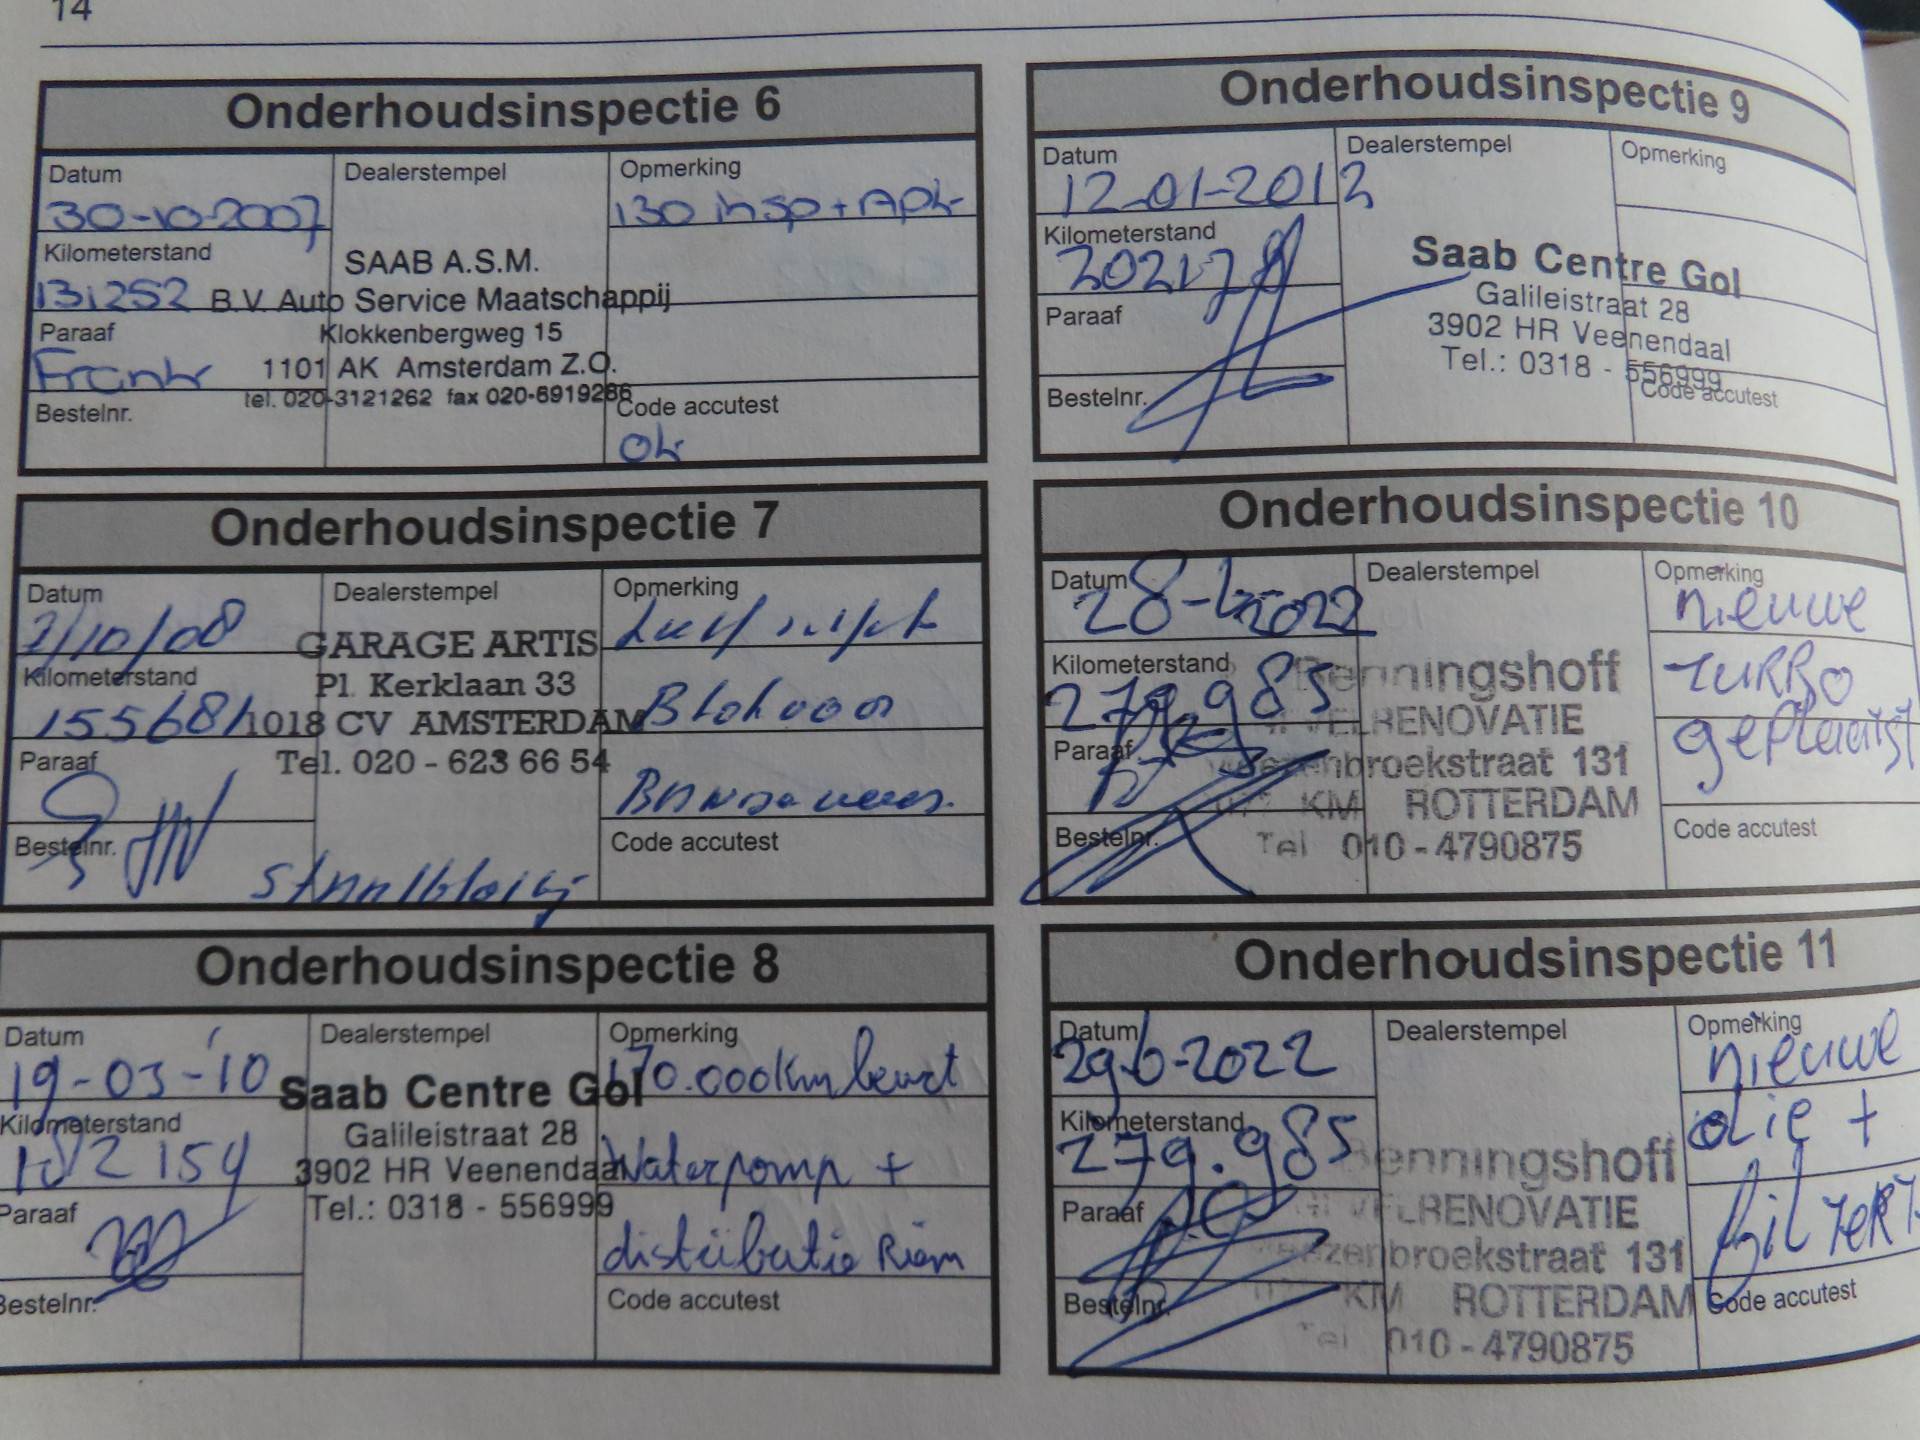 14
Onderhoudsinspectie 6
Datum
30-10-2007
Dealerstempel
Opmerking
130 insp + APK
Kilometerstand
131252
SAAB A.S.M.
B.V. Auto Service Maatschappij
Klokkenbergweg 15
1101 AK Amsterdam Z.O.
tel. 020-3121262 fax 020-6919286
Paraaf
Frank
Bestelnr.
Code accutest
ok
Onderhoudsinspectie 7
Datum
2/10/08
Dealerstempel
Opmerking
Kilometerstand
155681
GARAGE ARTIS
Pl. Kerklaan 33
1018 CV AMSTERDAM
Tel. 020 - 623 66 54
Paraaf
Bestelnr.
Code accutest
Onderhoudsinspectie 8
Datum
19-03-'10
Dealerstempel
Opmerking
170.000km beurt
Waterpomp +
distributie Riem
Kilometerstand
182154
Saab Centre Gol
Galileistraat 28
3902 HR Veenendaal
Tel.: 0318 - 556999
Paraaf
Bestelnr.
Code accutest
Onderhoudsinspectie 9
Datum
12-01-2012
Dealerstempel
Opmerking
Kilometerstand
Saab Centre Gol
Galileistraat 28
3902 HR Veenendaal
Tel.: 0318 - 556999
Paraaf
Bestelnr.
Code accutest
Onderhoudsinspectie 10
Datum
28-6-2022
Dealerstempel
Opmerking
nieuwe
TURBO
geplaatst
Kilometerstand
279.985
Benningshoff
RENOVATIE
broekstraat 131
KM ROTTERDAM
Tel 010 - 4790875
Paraaf
Bestelnr.
Code accutest
Onderhoudsinspectie 11
Datum
29-6-2022
Dealerstempel
Opmerking
nieuwe
olie +
filters
Kilometerstand
279.985
Benningshoff
RENOVATIE
broekstraat 131
KM ROTTERDAM
Tel 010 - 4790875
Paraaf
Bestelnr.
Code accutest